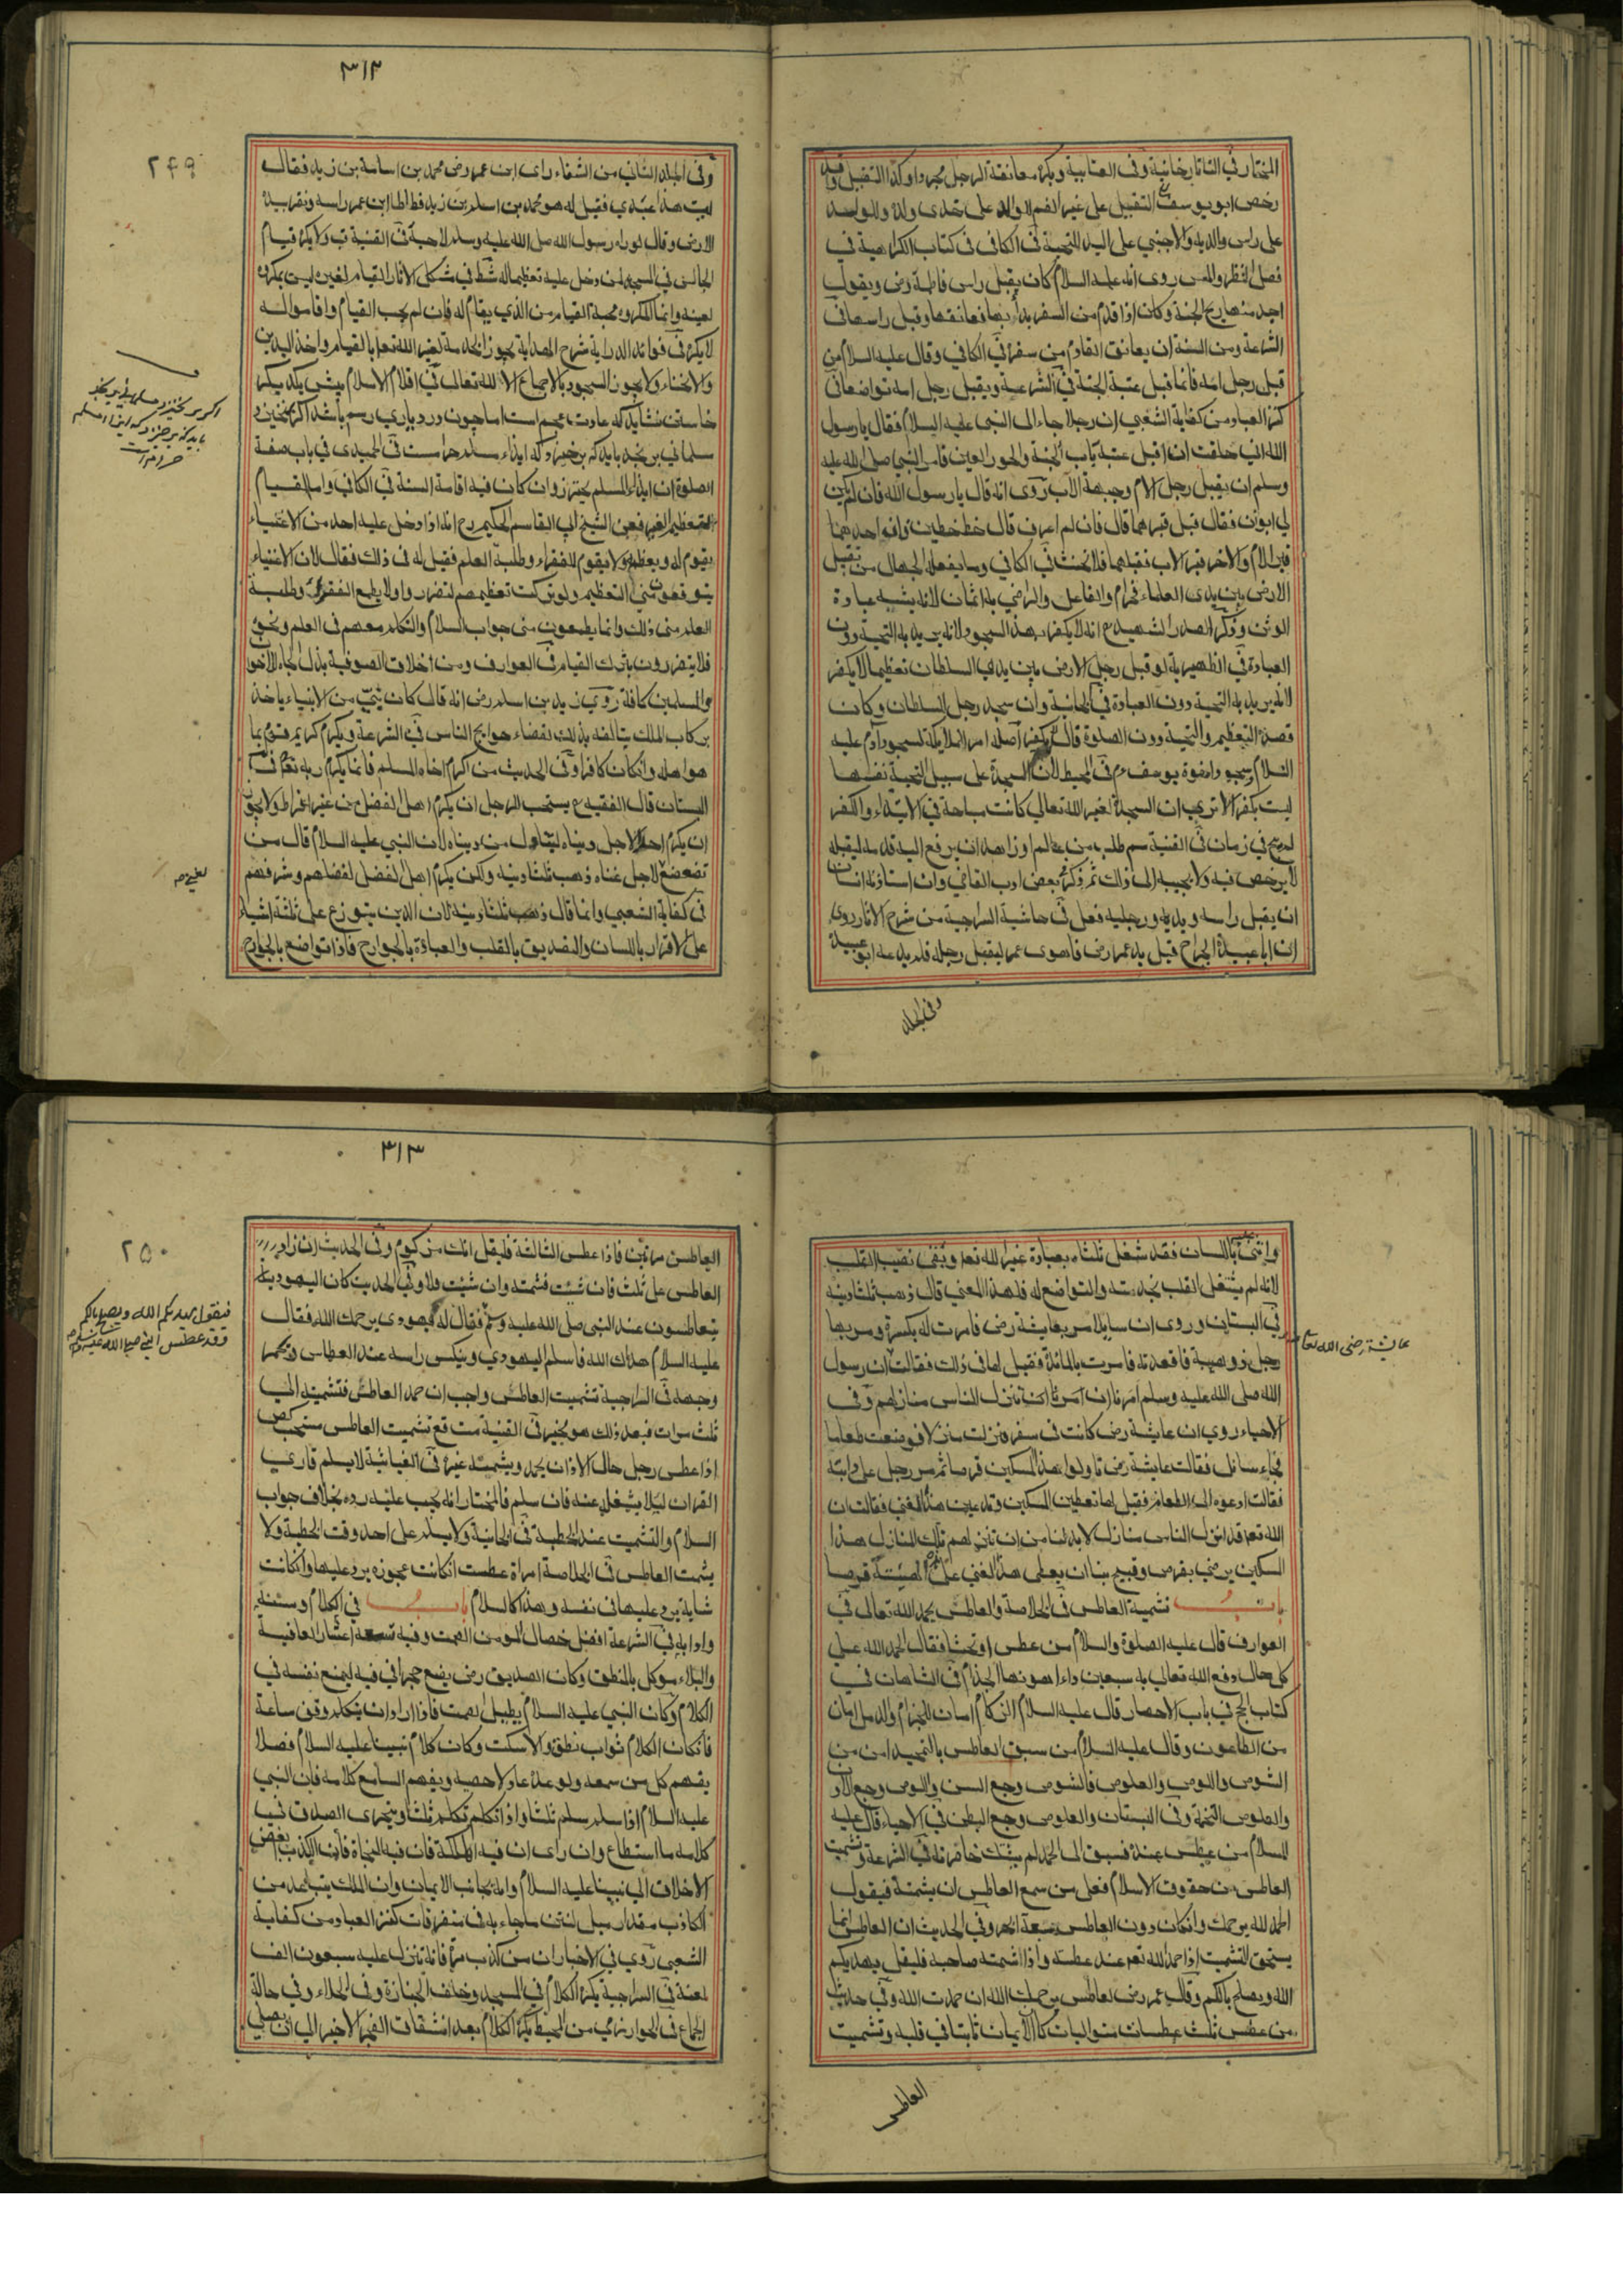 المختار في التاتارخانية وفي العتابية ويكره معانقة الرجل مجردا وكذا التقبيل وقد
رخص ابو يوسف التقبيل على غير الفم للوالد على خدي ولده وللولد
على راس والديه والاجنبي على اليد للتحية في الكافي في كتاب الكراهية في
فصل النظر والمس روى انه عليه السلام كان يقبل راس فاطمة رض ويقول
اجد منها ريح الجنة وكان اذا قدم من السفر بدأ بها فعانقها وقبل راسها في
الشرعة ومن السنة ان يعانق القادم من سفر في الكافي وقال عليه السلام من
قبل رجل امه فانما قبل عتبة الجنة في الشرعية ويقبل رجل امه تواضعا في
كنز العباد من كفاية الشعبي ان رجلا جاء الى النبي عليه السلام فقال يا رسول
الله اني حلفت ان اقبل عتبة باب الجنة والحور العين فامر النبي صلى الله عليه
وسلم ان يقبل رجل الام وجبهة الاب روى انه قال يا رسول الله فان لم يكن
لي ابوان فقال قبل قبرهما قال فان لم اعرف قال خط خطين وانو احدهما
قبر الام والاخر قبر الاب فقبلهما فلا تحنث في الكافي وما يفعله الجهال من تقبيل
الارض بين يدي العلماء فحرام والفاعل والراضي به اثمان لانه يشبه عبادة
الوثن وذكر الصدر الشهيد انه لا يكفر بهذا السجود لانه يريد به التحية دون
العبادة في الظهيرية لو قبل رجل الارض بين يدي السلطان تعظيما لا يكفر
لانه يريد به التحية دون العبادة في الخانية وان سجد رجل للسلطان وكان
قصده التعظيم والتحية دون الصلوة قال لا يكفر اصله امر الملايكة لسجود آدم عليه
السلام وسجود اخوة يوسف م في المحيط لان السجدة على سبيل التحية نفسها
ليست بكفر الا ترى ان السجدة لغير الله تعالى كانت مباحة في الابتداء والكفر
لم يبح في زمان في القنية سم طلب من عالم او زاهد ان يرفع اليه قدمه ليقبله
لا يرخص فيه ولا يجيبه الى ذلك ثم ذكر بعض ادب القاضي وان استاذنه انسان
ان يقبل راسه ويديه ورجليه فعل في حاشية السراجية من شرح الاثار روى
ان ابا عبيدة الجراح قبل يد عمر رض فاهوى عمر ليقبل رجله فلم يدعه ابو عبيدة
وفى الجلد
٣١٢
٢٤٩
وفي الجلد الثاني من الشفاء راى ابن عمر رض محمد بن اسامة بن زيد فقال
ليت هذا عبدي فقيل له هو محمد بن اسامه بن زيد فطاطا ابن عمر راسه ونقر بيده
الارض وقال لو راه رسول الله صلى الله عليه وسلم لاحبه في القنية قب ولا يكره قيام
الجالس في المسجد لمن دخل عليه تعظيما له شط في مشكل الاثار القيام لغيره ليس بمكروه
لعينه وانما المكروه محبة القيام من الذي يقام له فان لم يحب القيام وقاموا له
لا يكره في فوائد الدراية شرح الهداية يجوز الخدمة لغير الله تعالى بالقيام واخذ اليدين
والانحناء ولا يجوز السجود بالاجماع الا لله تعالى في اقلام الاسلام پیش یکدیگر
خاستن نشاید که عادت عجم است اما چون ورودباری رسم باشد اگر نخیزد
مسلماني برنجد بايد كه برخيزد كه ايذاء مسلم حرامست في الحميدى في باب صفة
الصلوة ان ايذاء المسلم يحترز وان كان فيه اقامة السنة في الكافي واما القيام
لتعظيم الغير فعن الشيخ ابي القاسم الحكيم رح انه اذا دخل عليه احد من الاغنياء
يقوم له ويعظمه ولا يقوم للفقراء وطلبة العلم فقيل له في ذلك فقال لان الاغنياء
يتوقعون مني التعظيم ولو تركت تعظيمهم لتضرروا ولا يطمع الفقراء وطلبة
العلم مني ذلك وانما يطمعون مني جواب السلام والتكلم معهم في العلم ونحوه
فلا يتضررون بترك القيام في العوارف ومن اخلاق الصوفية بذل الجاه للاخوان
والمسلمين كافة روى زيد بن اسلم رض انه قال كان نبي من الانبياء ياخذ
بركاب الملك يتالفه بذلك لقضاء حوايج الناس في الشرعة ويكرم كريم قوم بما
هو اهله وان كان كافرا وفي الحديث من اكرم اخاه المسلم فانما يكرم ربه تعالى في
البستان قال الفقيه ع يستحب للرجل ان يكرم اهل الفضل من غير افراط ولا يجوز
ان يكرم احدا لاجل دنياه ليتناول من دنياه لان النبي عليه السلام قال من
تضعضع لاجل غناء ذهب ثلثا دينه ولكن يكرم اهل الفضل لفضلهم وشرفهم
في كفاية الشعبي وانما قال ذهب ثلثا دينه لان الدين يتوزع على ثلثة اشياء
على الاقرار باللسان والتصديق بالقلب والعبادة بالجوارح فاذا تواضع بالجوارح
اكر برنخيزد
بايد كه برخيزد كه ايذاء مسلم
حرام است
واثنى باللسان فقد شغل ثلثاه بعبادة غير الله تعالى وبقي نصيب القلب
لانه لم يشغل القلب بخدمته والتواضع له فلهذا المعني قال ذهب ثلثا دينه
في البستان وروى ان سايلا مر بعايشة رض فامرت له بكسرة ومر بها
رجل ذو هيبة فاقعدته فامرت بالمائدة فقيل لها في ذلك فقالت ان رسول
الله صلى الله عليه وسلم امرنا ان ننزل الناس منازلهم وفي
الاحياء روى ان عايشة رض كانت في سفر فنزلت منزلا فوضعت طعاما
فجاء سائل فقالت عايشة رض ناولوا هذا المسكين قرصا ثم مر رجل على دابته
فقالت ادعوه الى الطعام فقيل لها تعطين المسكين وتدعين هذا الغني فقالت ان
الله تعالى قد انزل الناس منازل لا بد لنا من ان ننزلهم تلك المنازل هذا
المسكين يرضى بقرص وقبيح بنا ان يعطى هذا الغني على هذه الهيئة قرصا
باب تشمية العاطس في الخلاصة والعاطس يحمد الله تعالى في
العوارف قال عليه الصلوة والسلام من عطس او تجشأ فقال الحمد لله على
كل حال دفع الله تعالى به سبعين داء اهونها الجذام في الشاهان في
كتاب الحج في باب الاحصار قال عليه السلام الزكام امان للجذام والدمل امان
من الطاعون وقال عليه السلام من سبق العاطس بالتحميد امن من
الشوص واللوص والعلوص فالشوص وجع السن واللوص وجع الاذن
والعلوص التخمة وفي البستان والعلوص وجع البطن في الاحياء قال عليه
السلام من عطس عنده فسبق الى الحمد لم يشتك خاصرته في الشرعة وتشميت
العاطس من حقوق الاسلام فعلى من سمع العاطس ان يشمته فيقول
الحمد لله يرحمك وان كان دون العاطس سبعة ابحر وفي الحديث ان العاطس انما
يستحق التشميت اذا حمد الله تعالى عند عطسته واذا شمته صاحبه فليقل يهديكم
الله ويصلح بالكم وقال عمر رض لعاطس يرحمك الله ان حمدت الله وفي حديث
من عطس ثلث عطسات متواليات كان الايمان ثابتا في قلبه وتشميت
عايشة رضى الله تعالى
العاطس
٣١٣
٢٥٠
العاطس مرتين فاذا عطس الثالثة فليقل انك مزكوم وفي الحديث ان زاد
العاطس على ثلث فان شئت فشمته وان شئت فلا وفي الحديث كان اليهود
يتعاطسون عند النبي صلى الله عليه وسلم فقال له يهودى يرحمك الله فقال
عليه السلام هداك الله فاسلم اليهودي وينكس راسه عند العطاس ويخمر
وجهه في السراجية تشميت العاطس واجب ان حمد العاطس فتشميته الى
ثلث مرات فبعد ذلك هو مخير في القنية مت قع تشميت العاطس مستحب كص
اذا عطس رجل حال الاذان يحمد ويشمته غيره في الغياثية لا يسلم قاري
القران ليلا يشغله عنه فان سلم فالمختار انه يجب عليه رده بخلاف جواب
السلام والتشميت عند الخطبة في الخانية ولا يسلم على احد وقت الخطبة ولا
يشمت العاطس في الخلاصة امراة عطست ان كانت عجوزه يرد عليها وان كانت
شابة يرد عليها في نفسه وهذا كالسلام باب في الكلام وسننه
وادابه في الشرعة افضل خصال المومن الصمت وفيه تسعة اعشار العافية
والبلاء موكل بالمنطق وكان الصديق رض يضع حجرا في فيه ليمنع نفسه في
الكلام وكان النبي عليه السلام يطيل الصمت فاذا اراد ان يتكلم وقف ساعة
فان كان الكلام ثواب نطق والا سكت وكان كلام نبينا عليه السلام فصلا
يفهم كل من سمعه ولو عده عاد لاحصيه ويفهم السامع كلامه فان النبي
عليه السلام اذا سلم سلم ثلثا واذا تكلم تكلم ثلثا ويتحرى الصدق في
كلامه ما استطاع وان راى ان فيه الهلكة فان فيه النجاة فان الكذب ابغض
الاخلاق الى نبينا عليه السلام وانه يجانب الايمان وان الملك يتباعد من
الكاذب مقدار ميل لنتن ما جاء به في متفرقات كنز العباد من كفاية
الشعبي روي في الاخبار ان من كذب مرة فانه تنزل عليه سبعون الف
لعنة في السراجية يكره الكلام في المسجد وخلف الجنازة وفي الخلاء وفي حالة
الجماع في الخوارزمي من المحيط يكره الكلام بعد انشقاق الفجر الاخير الى ان يصلي
فيقول يهديكم الله ويصلح بالكم
وقد عطس النبي صلى الله عليه وسلم